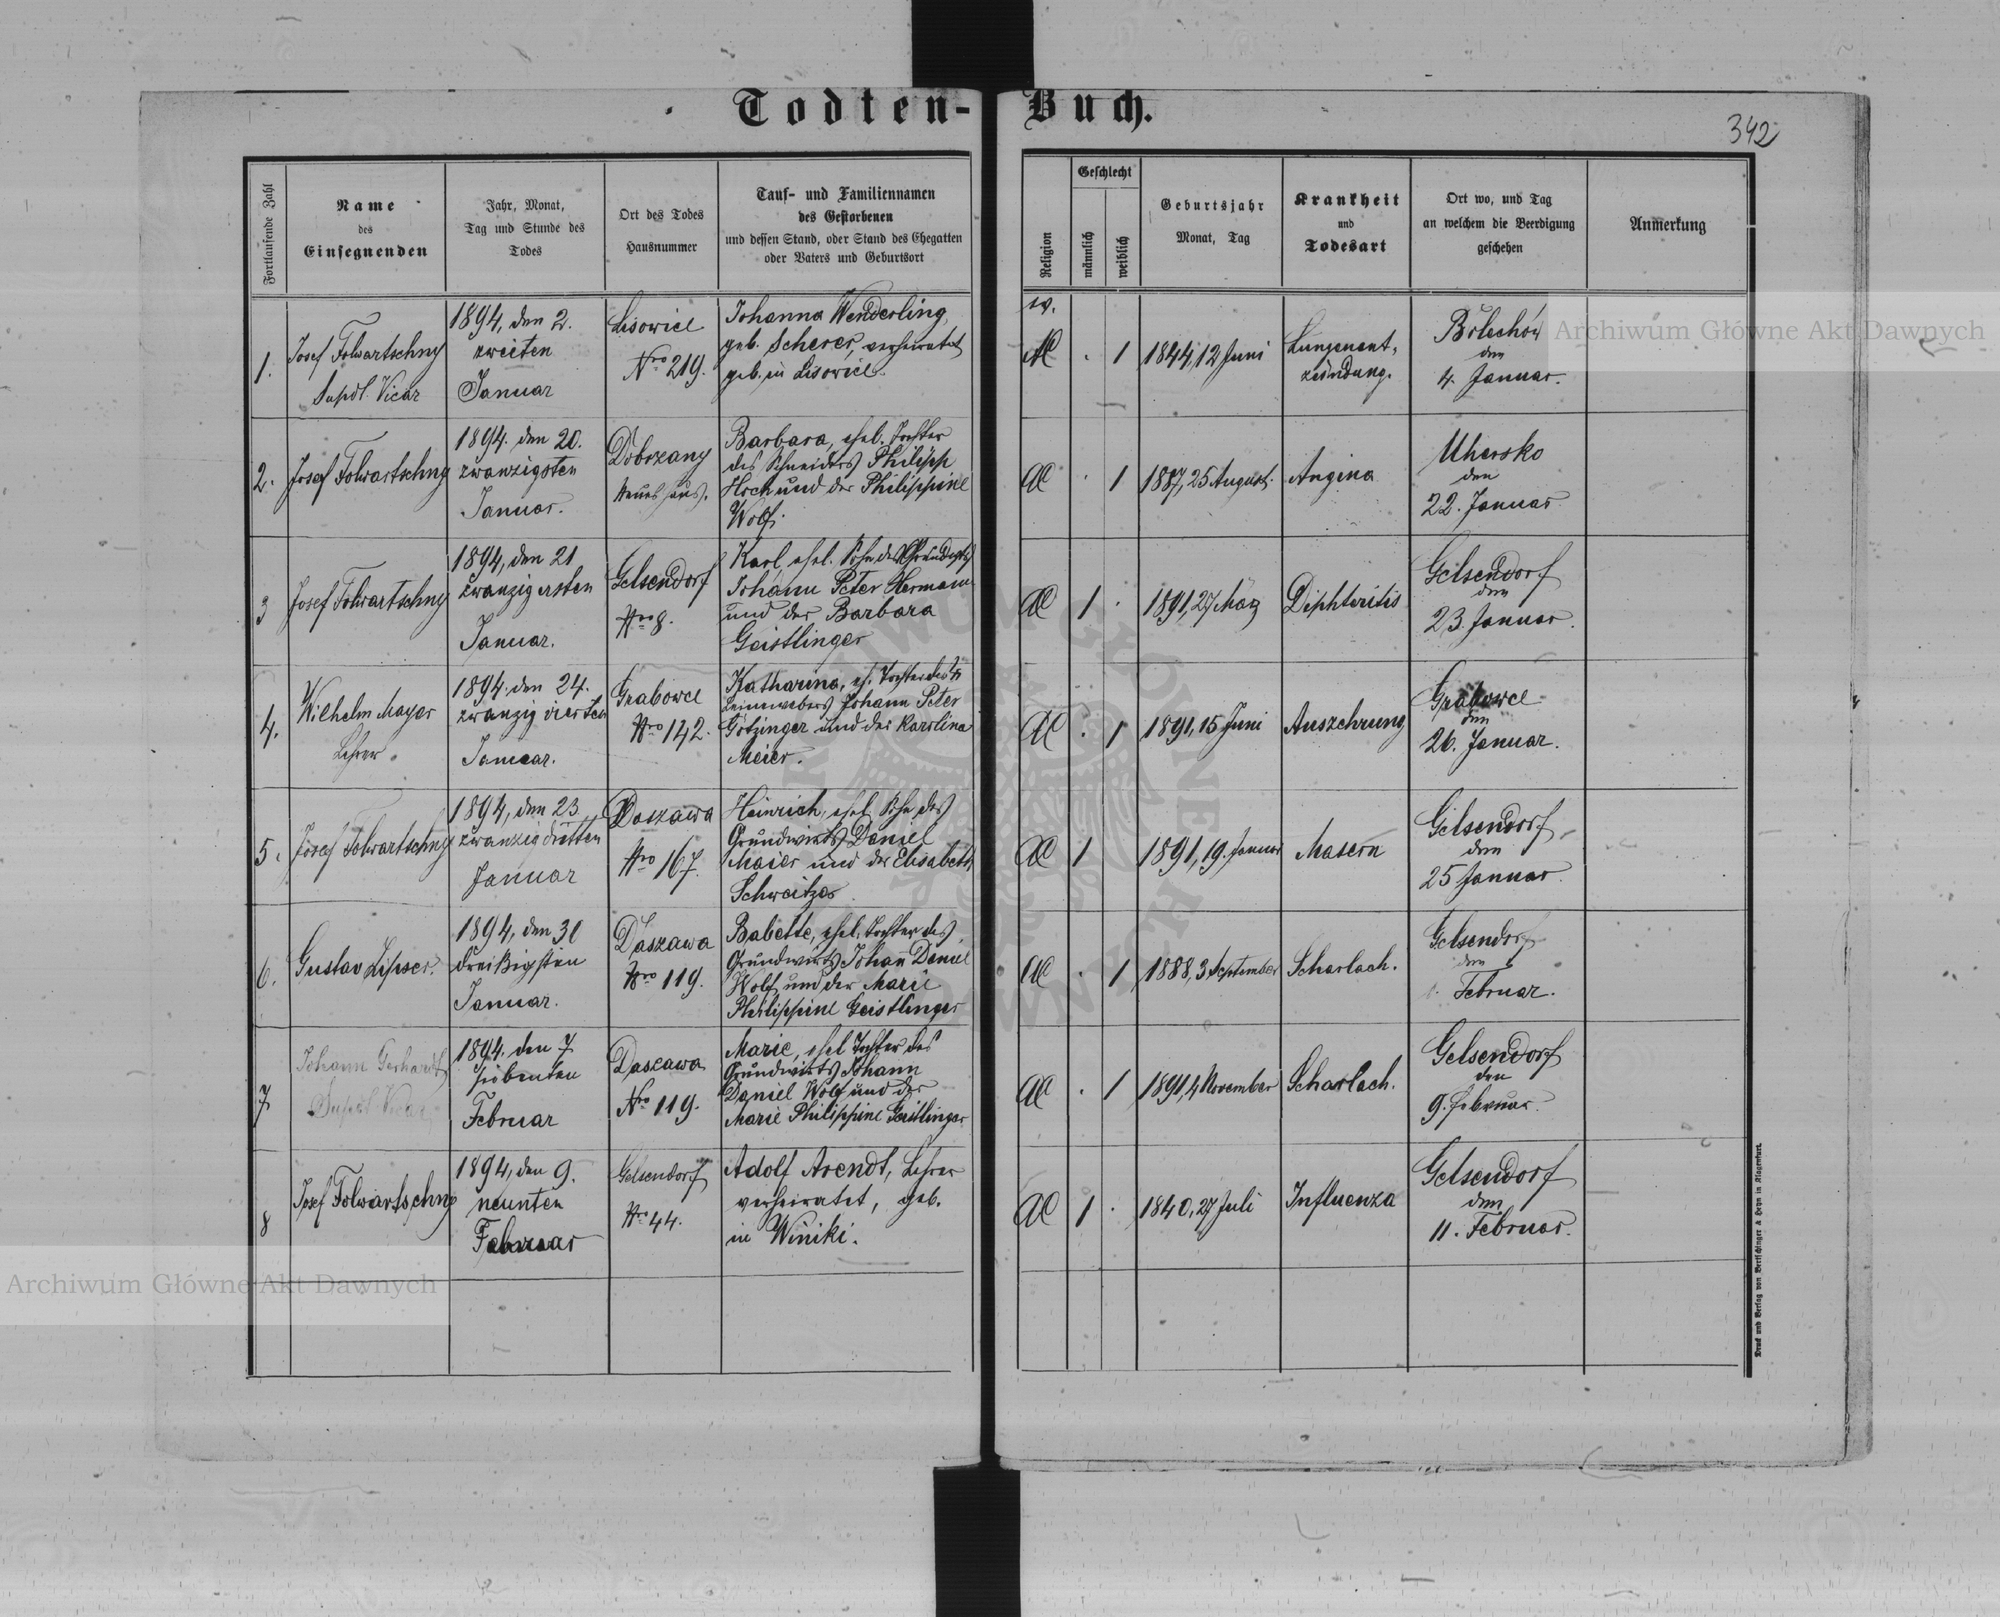 Todten-Buch.
342
Fortlaufende Zahl
Name
des
Einsegnenden
Jahr, Monat,
Tag und Stunde des
Todes
Ort des Todes
Hausnummer
Tauf- und Familiennamen
des Gestorbenen
und dessen Stand, oder Stand des Ehegatten
oder Vaters und Geburtsort
Religion
Geschlecht
männlich
weiblich
Geburtsjahr
Monat, Tag
Krankheit
und
Todesart
Ort wo, und Tag
an welchem die Beerdigung
geschehen
Anmerkung
1.
Josef Folwartschny
Supdl. Vicar
1894, den 2.
zweiten
Januar
Lisowice
Nro 219.
Johanna Wenderling,
geb. Scherer, verheiratet
geb. in Lisowice.
ev.
AC
1
1844, 12 Juni
Lungenent-
zündung.
Bolechów
den
4. Januar.
2.
Josef Folwartschny
1894. den 20.
zwanzigsten
Januar.
Dobrzany
Neues Haus.
Barbara, ehel. Tochter
des Schneiders Philipp
Hoch und der Philippine
Wolf.
AC
1
1887, 25 August.
Angina
Uhersko
den
22. Januar
3
Josef Folwartschny
1894, den 21
zwanzig ersten
Januar.
Gelsendorf
Nro 8.
Karl, ehel. Sohn des Grundwirts
Johann Peter Hermann
und der Barbara
Geistlinger
AC
1
1891, 27 März
Diphteritis
Gelsendorf
den
23. Januar.
4.
Wilhelm Mayer
Lehrer
1894. den 24.
zwanzig vierten
Januar.
Grabowce
Nro 142.
Katharina, eh. Tochter des
Leinwebers Johann Peter
Götzinger und der Karolina
Meier.
AC
1
1891, 15 Juni
Auszehrung
Grabowce
den
26. Januar.
5.
Josef Folwartschny
1894, den 23
zwanzig dritten
Januar
Daszawa
Nro 167.
Heinrich, ehel. Sohn des
Grundwirts Daniel
Maier und der Elisabeth
Schweitzer
AC
1
1891, 19. Januar
Masern
Gelsendorf
den
25 Januar.
6.
Gustav Lipser.
1894, den 30
dreißigsten
Januar.
Daszawa
Nro 119.
Babette, ehel. Tochter des
Grundwirts Johan Daniel
Wolf und der Marie
Philippine Geistlinger
AC
1
1888, 3 September
Scharlach.
Gelsendorf
den
Februar.
7
Johann Gerhardt
Supdl. Vicar
1894. den 7
siebenten
Februar
Daszawa
Nro 119.
Marie, ehel Tochter des
Grundwirts Johann
Daniel Wolf und der
Marie Philippine Geistlinger
AC
1
1891, 4 November
Scharlach.
Gelsendorf
den
9. Februar.
8
Josef Folwartschny
1894, den 9.
neunten
Februar
Gelsendorf
Nro 44.
Adolf Arendt, Lehrer
verheiratet, geb.
in Winiki.
AC
1
1840, 27 Juli
Influenza
Gelsendorf
den
11. Februar.
Druck und Verlag von Bertschinger & Heyn in Klagenfurt.
Archiwum Główne Akt Dawnych
Archiwum Główne Akt Dawnych